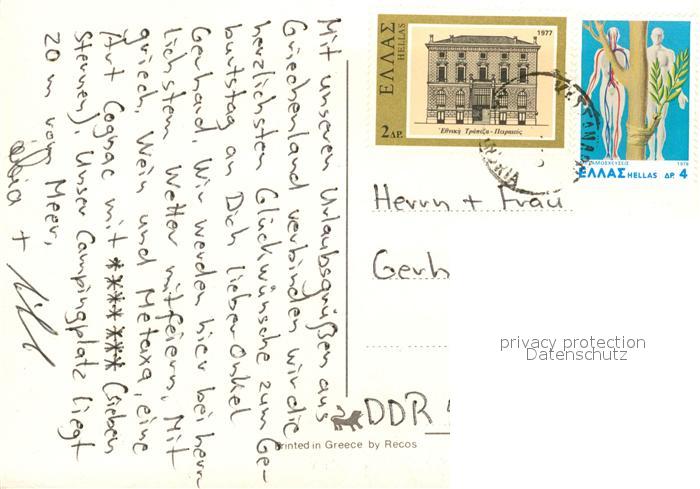 Mit unseren Urlaubsgrüßen aus
Griechenland verbinden wir die
herzlichsten Glückwünsche zum Ge-
burtstag an Dich lieber Onkel
Gerhard. Wir werden hier bei herr-
lichstem Wetter mitfeiern. Mit
griech. Wein und Metaxa, eine
Art Cognac mit ******* (sieben
Sternen). Unser Campingplatz liegt
20 m vom Meer.
+
ΕΛΛΑΣ
HELLAS
1977
2 ΔΡ.
Ἐθνική Τράπεζα - Πειραιεύς
1978
ΕΛΛΑΣ HELLAS ΔΡ. 4
Herrn + Frau
Gerh
privacy protection
Datenschutz
DDR
Printed in Greece by Recos